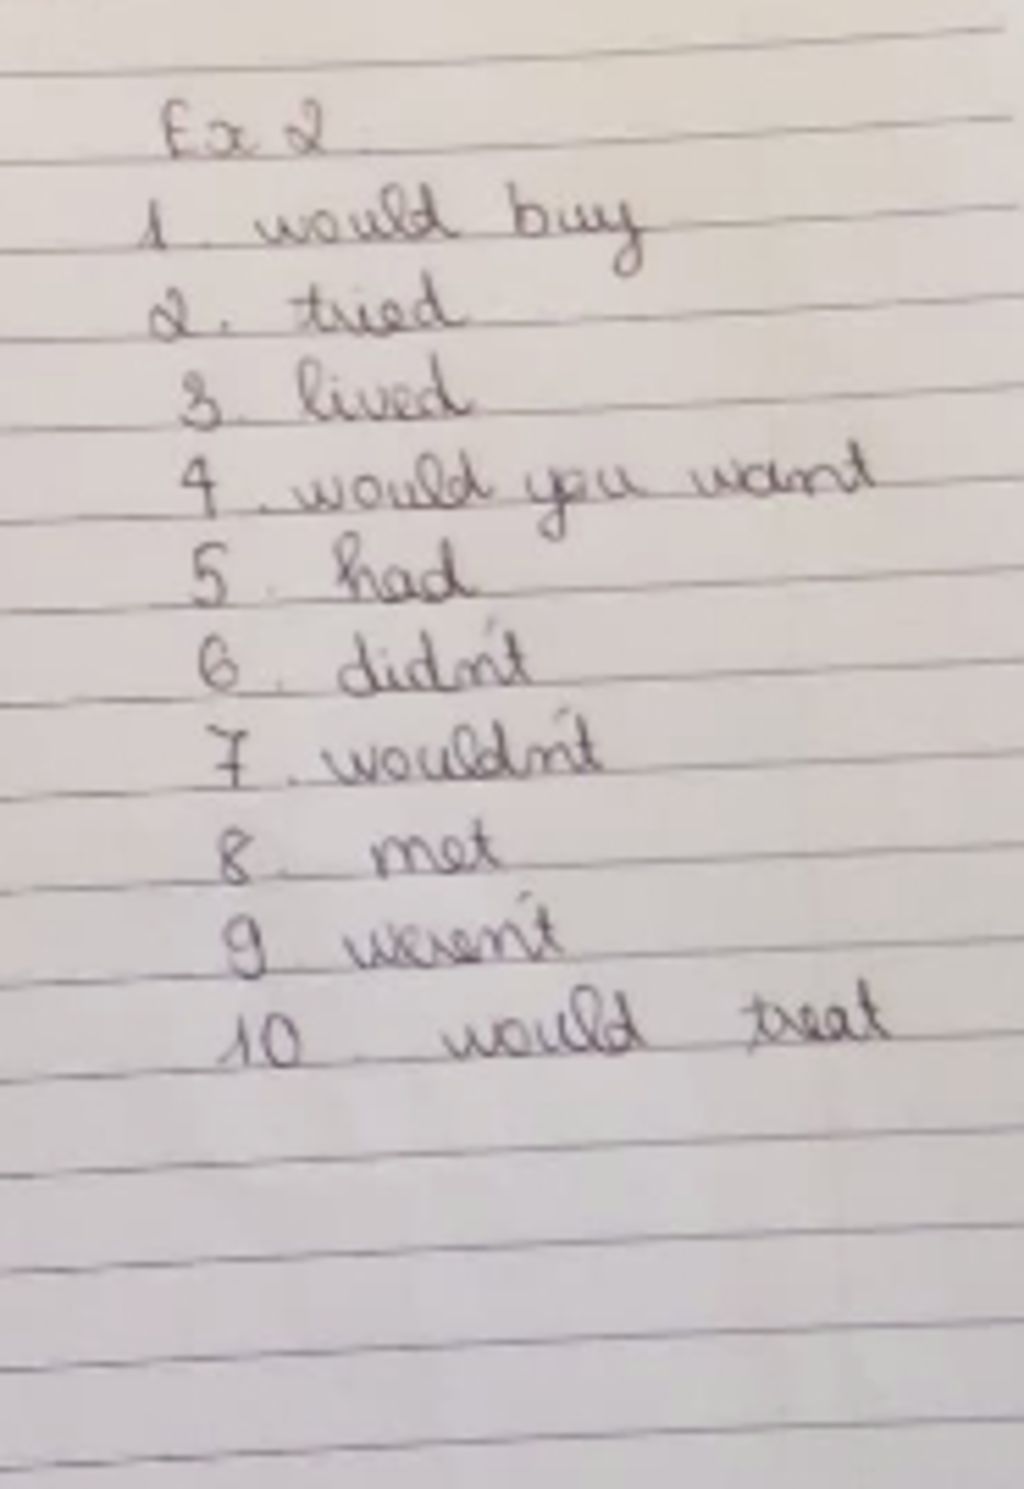 Ex 2
1. would buy
2. tried
3. lived
4. would you want
5. had
6. didn't
7. wouldn't
8. met
9 weren't
10 would treat